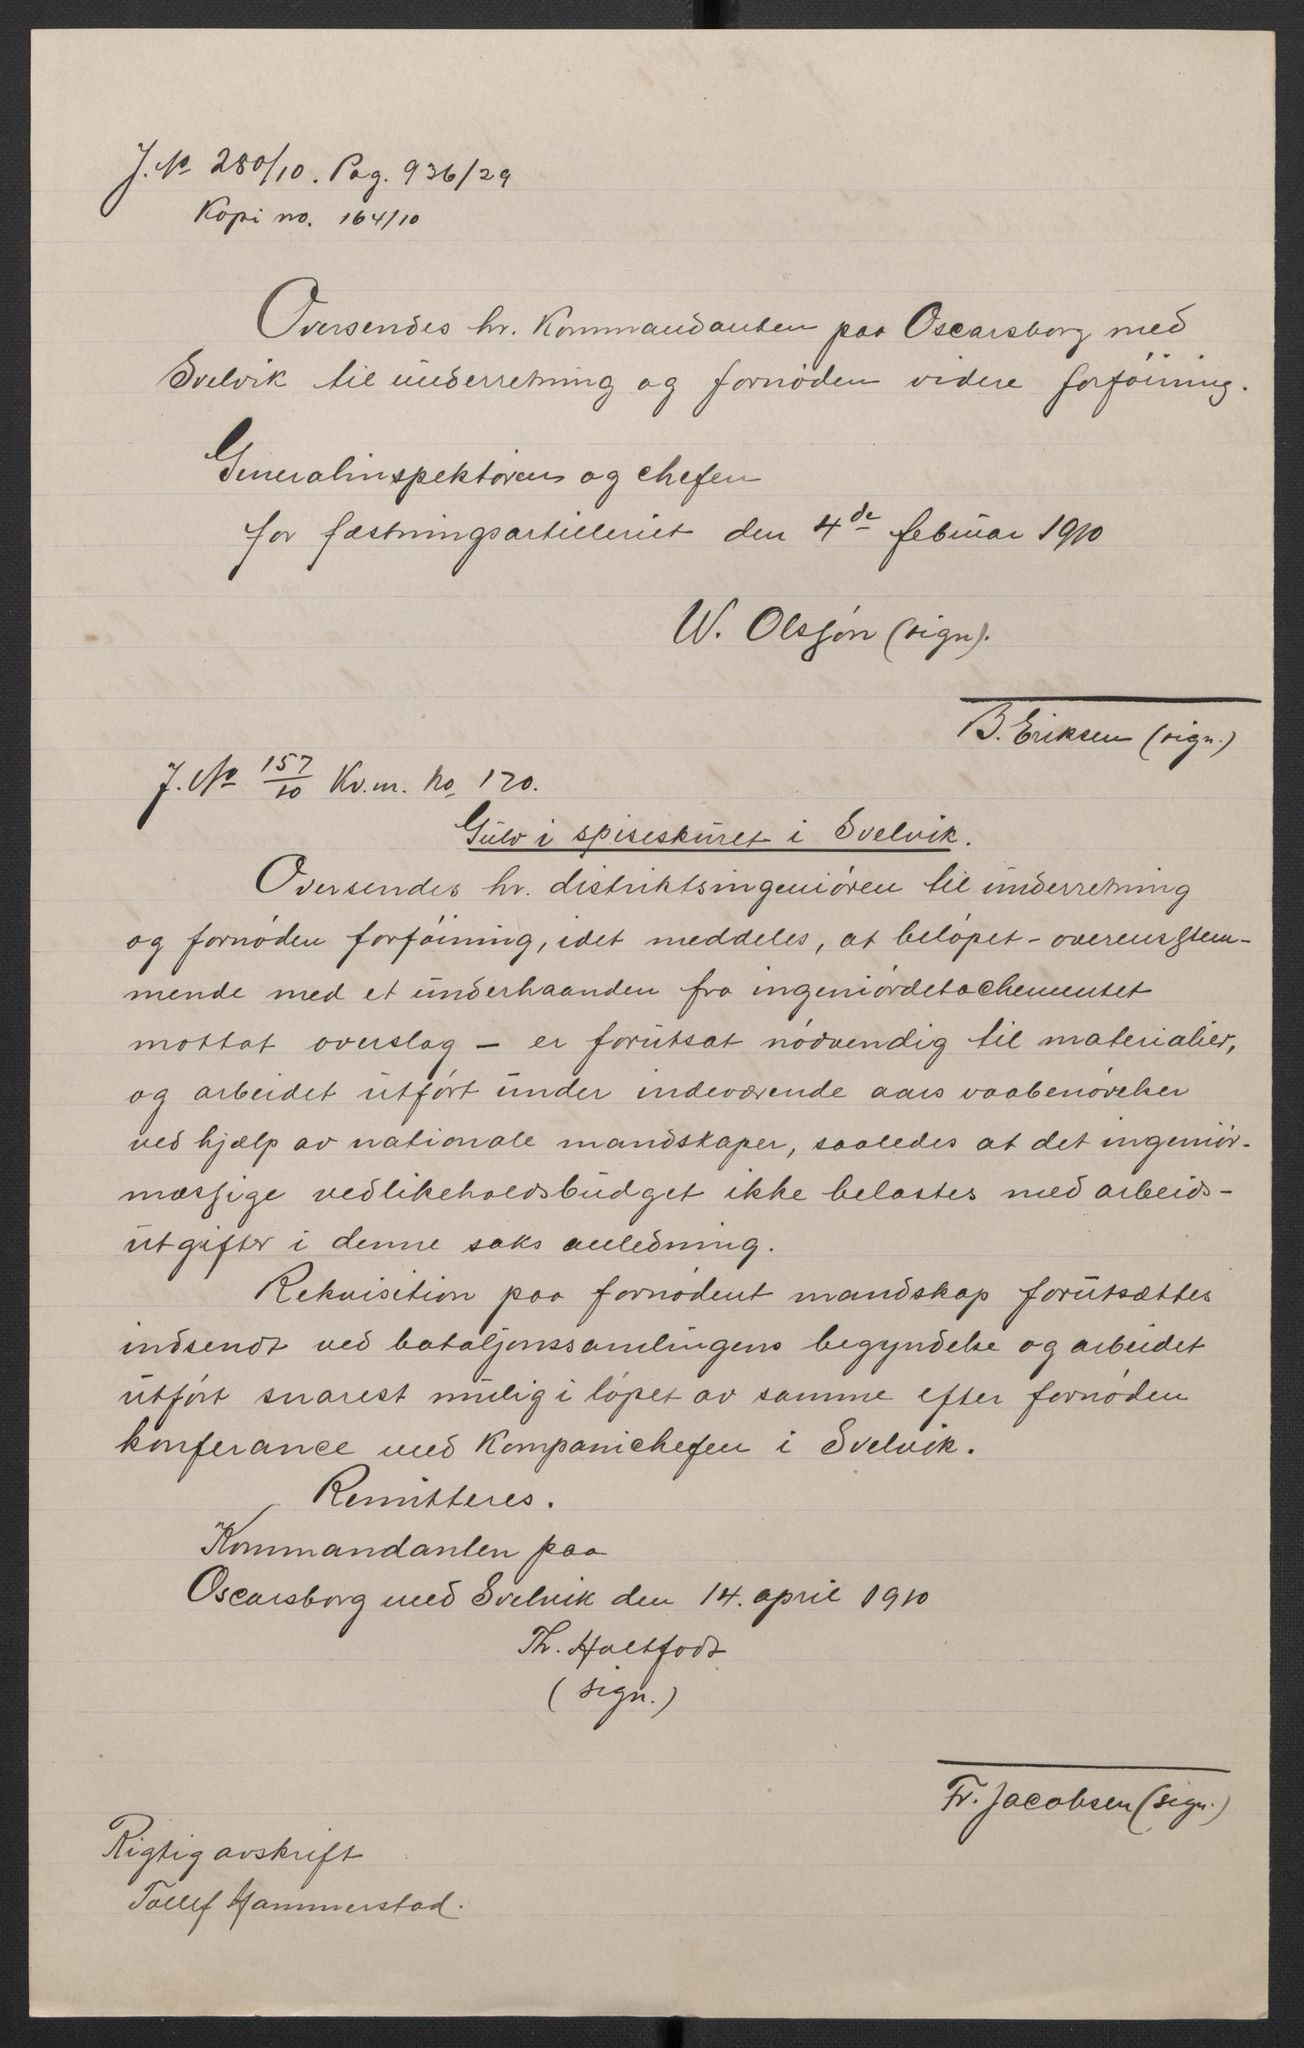 J. No 280/10. Pag. 936/29
Kopi no. 164/10
Oversendes hr. Kommandanten paa Oscarsborg med
Svelvik til underretning og fornøden videre forföining.
Generalinspektøren og chefen
for fæstningsartilleriet den 4de februar 1910
W. Olssøn (sign).
B. Eriksen (sign.)
J. No 157/10 Kv.m. No 170.
Gulv i spiseskuret i Svelvik.
Oversendes hr. distriktsingeniøren til underretning
og fornøden forføining, idet meddeles, at beløpet - overensstem-
mende med et underhaanden fra ingeniørdetachementet
mottat overslag - er forutsat nødvendig til materialier,
og arbeidet utført under indeværende aars vaabenøvelser
ved hjælp av nationale mandskaper, saaledes at det ingeniør-
mæssige vedlikeholdsbudget ikke belastes med arbeids-
utgifter i denne saks anledning.
Rekvisition paa fornødent mandskap forutsættes
indsendt ved bataljonssamlingens begyndelse og arbeidet
utført snarest mulig i løpet av samme efter fornøden
konferance med Kompanichefen i Svelvik.
Remitteres.
Kommandanten paa
Oscarsborg med Svelvik den 14. april 1910
Th. Holtfodt
(sign.)
Fr. Jacobsen (sign.)
Rigtig avskrift
Tollef Hammerstad.